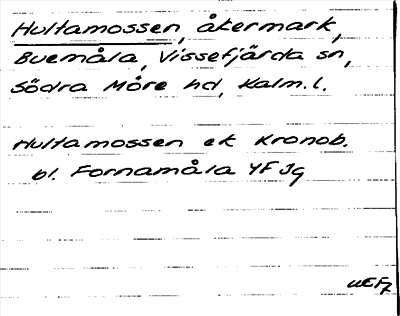 Hultamossen, åkermark,
Buemåla, Vissefjärda sn,
Södra Möre hd, Kalm.l.
Hultamossen ek Kronob.
bl. Fornamåla YF Jg